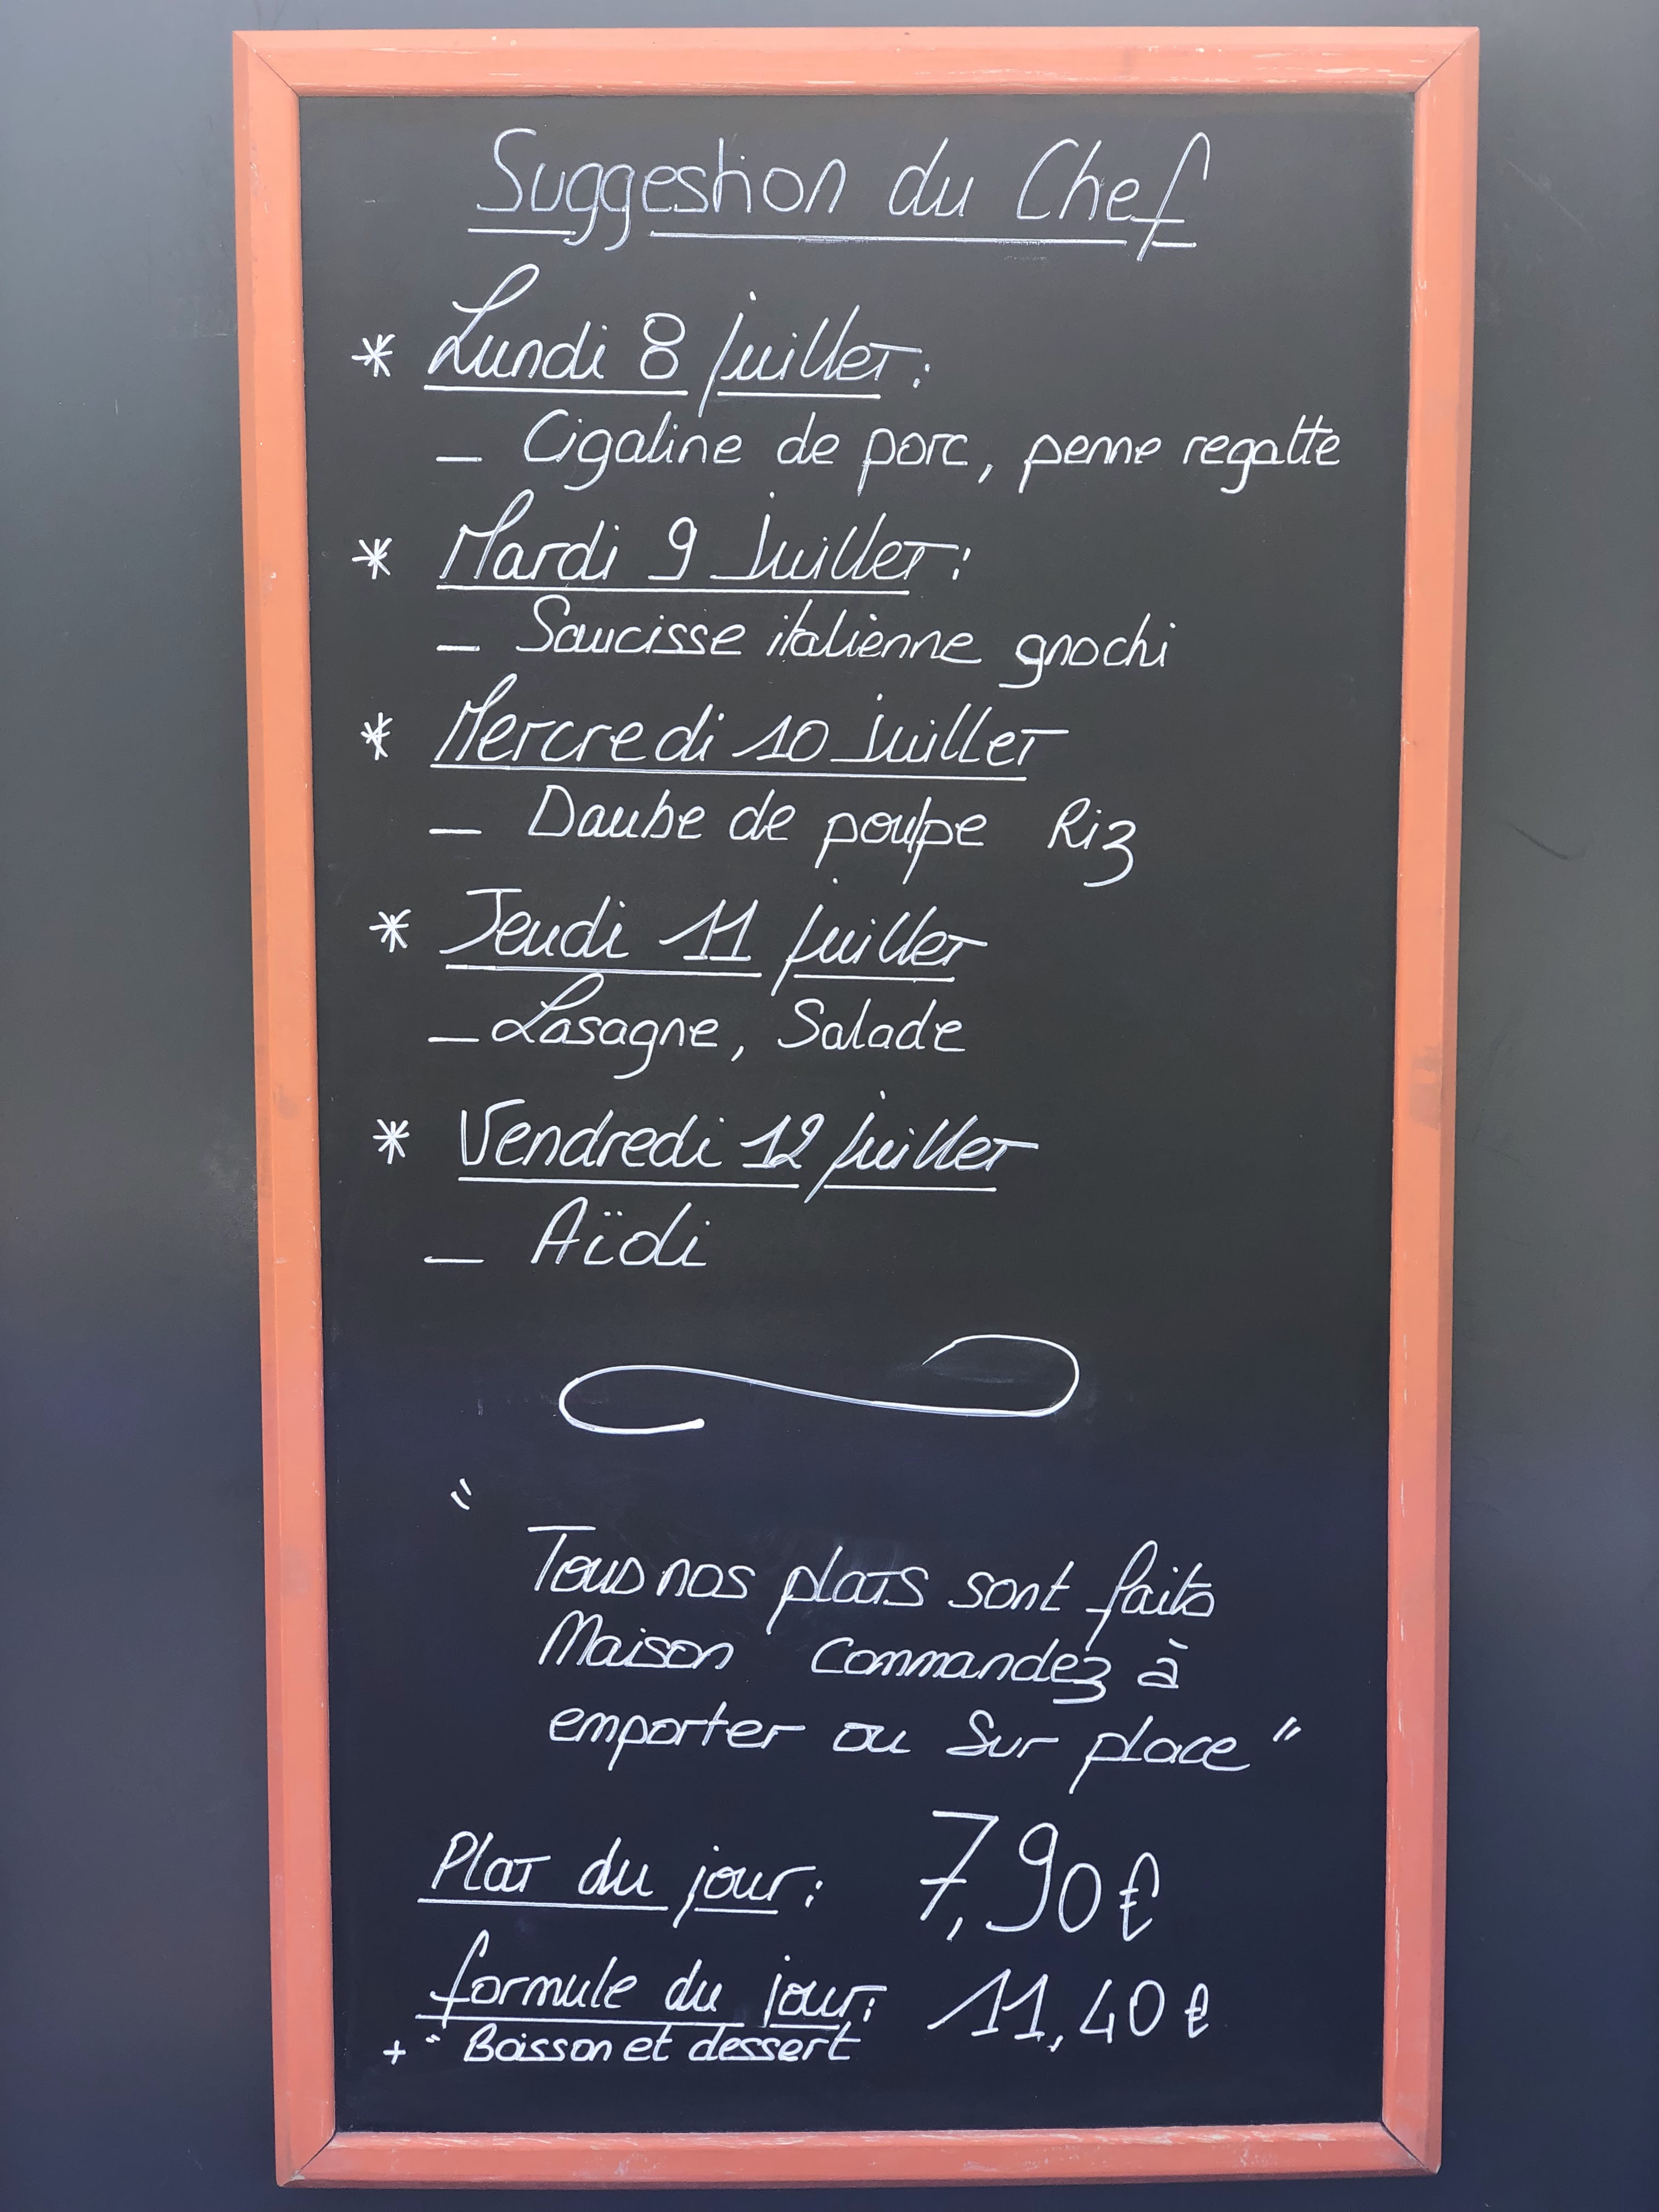 Suggestion du Chef
* Lundi 8 juillet :
_ Cigaline de porc, penne regatte
* Mardi 9 Juillet :
_ Saucisse italienne gnochi
* Mercredi 10 Juillet
_ Daube de poulpe Riz
* Jeudi 11 juillet
_ Lasagne, Salade
* Vendredi 12 juillet
_ Aïoli
"
Tous nos plats sont faits
Maison Commandez à
emporter ou Sur place "
Plat du jour : 7,90 €
formule du jour : 11,40 €
+ " Boisson et dessert